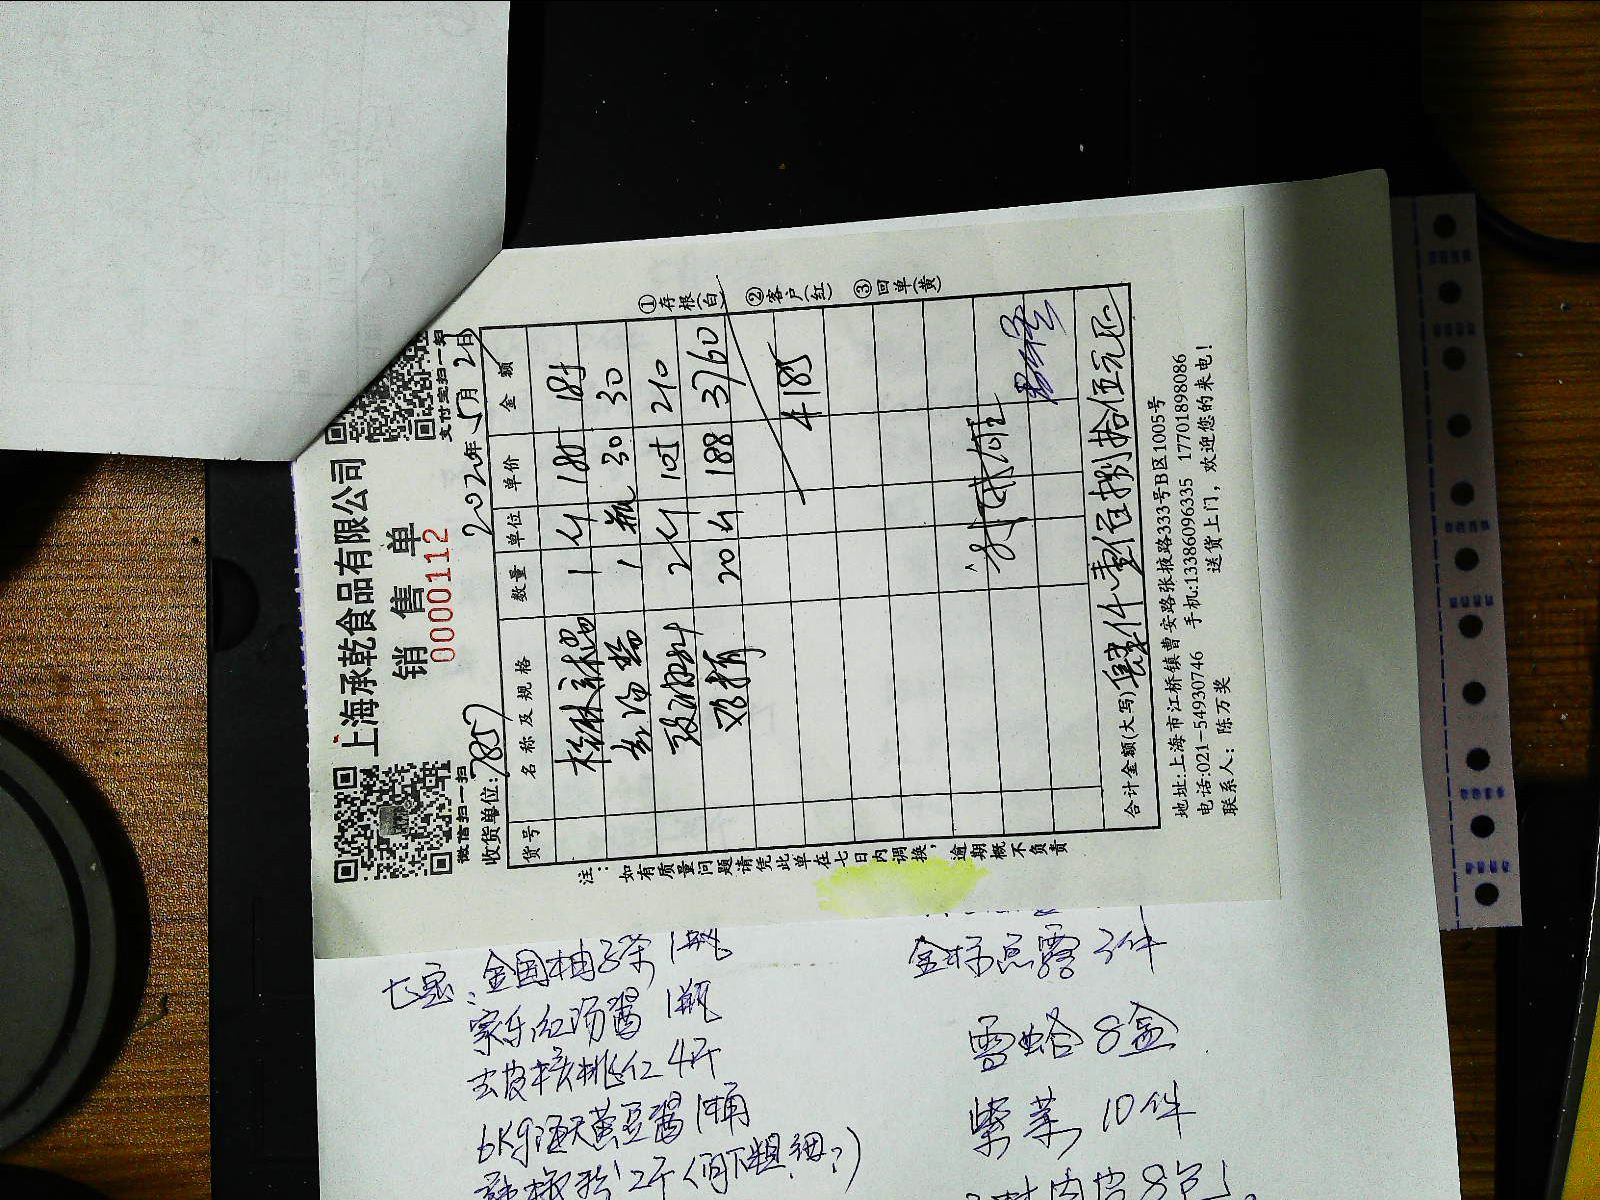 上海承乾食品有限公司
销售单
0000112
微信扫一扫
支付宝扫一扫
收货单位:7857
2022年5月2日
货号 名称及规格 数量 单位 单价 金额
1 185 185
红汤 1 瓶 30 30
2 105 210
鸡精 20 188 3760
4185
合计金额(大写)肆仟壹佰捌拾伍元
①存根(白)
②客户(红)
③回单(黄)
注:如有质量问题请凭此单在七日内调换,逾期概不负责
地址:上海市江桥镇曹安路张掖路333号B区1005号
电话:021-54930746 手机:13386096335 17701898086
联系人:陈万奖 送货上门,欢迎您的来电!
七宝:全国柚子茶1瓶
家乐红汤酱1瓶
去皮核桃仁4斤
6Kg海天黄豆酱1桶
2斤(问下粗细?)
金标 露3件
雪蛤8盒
紫菜10件
8包